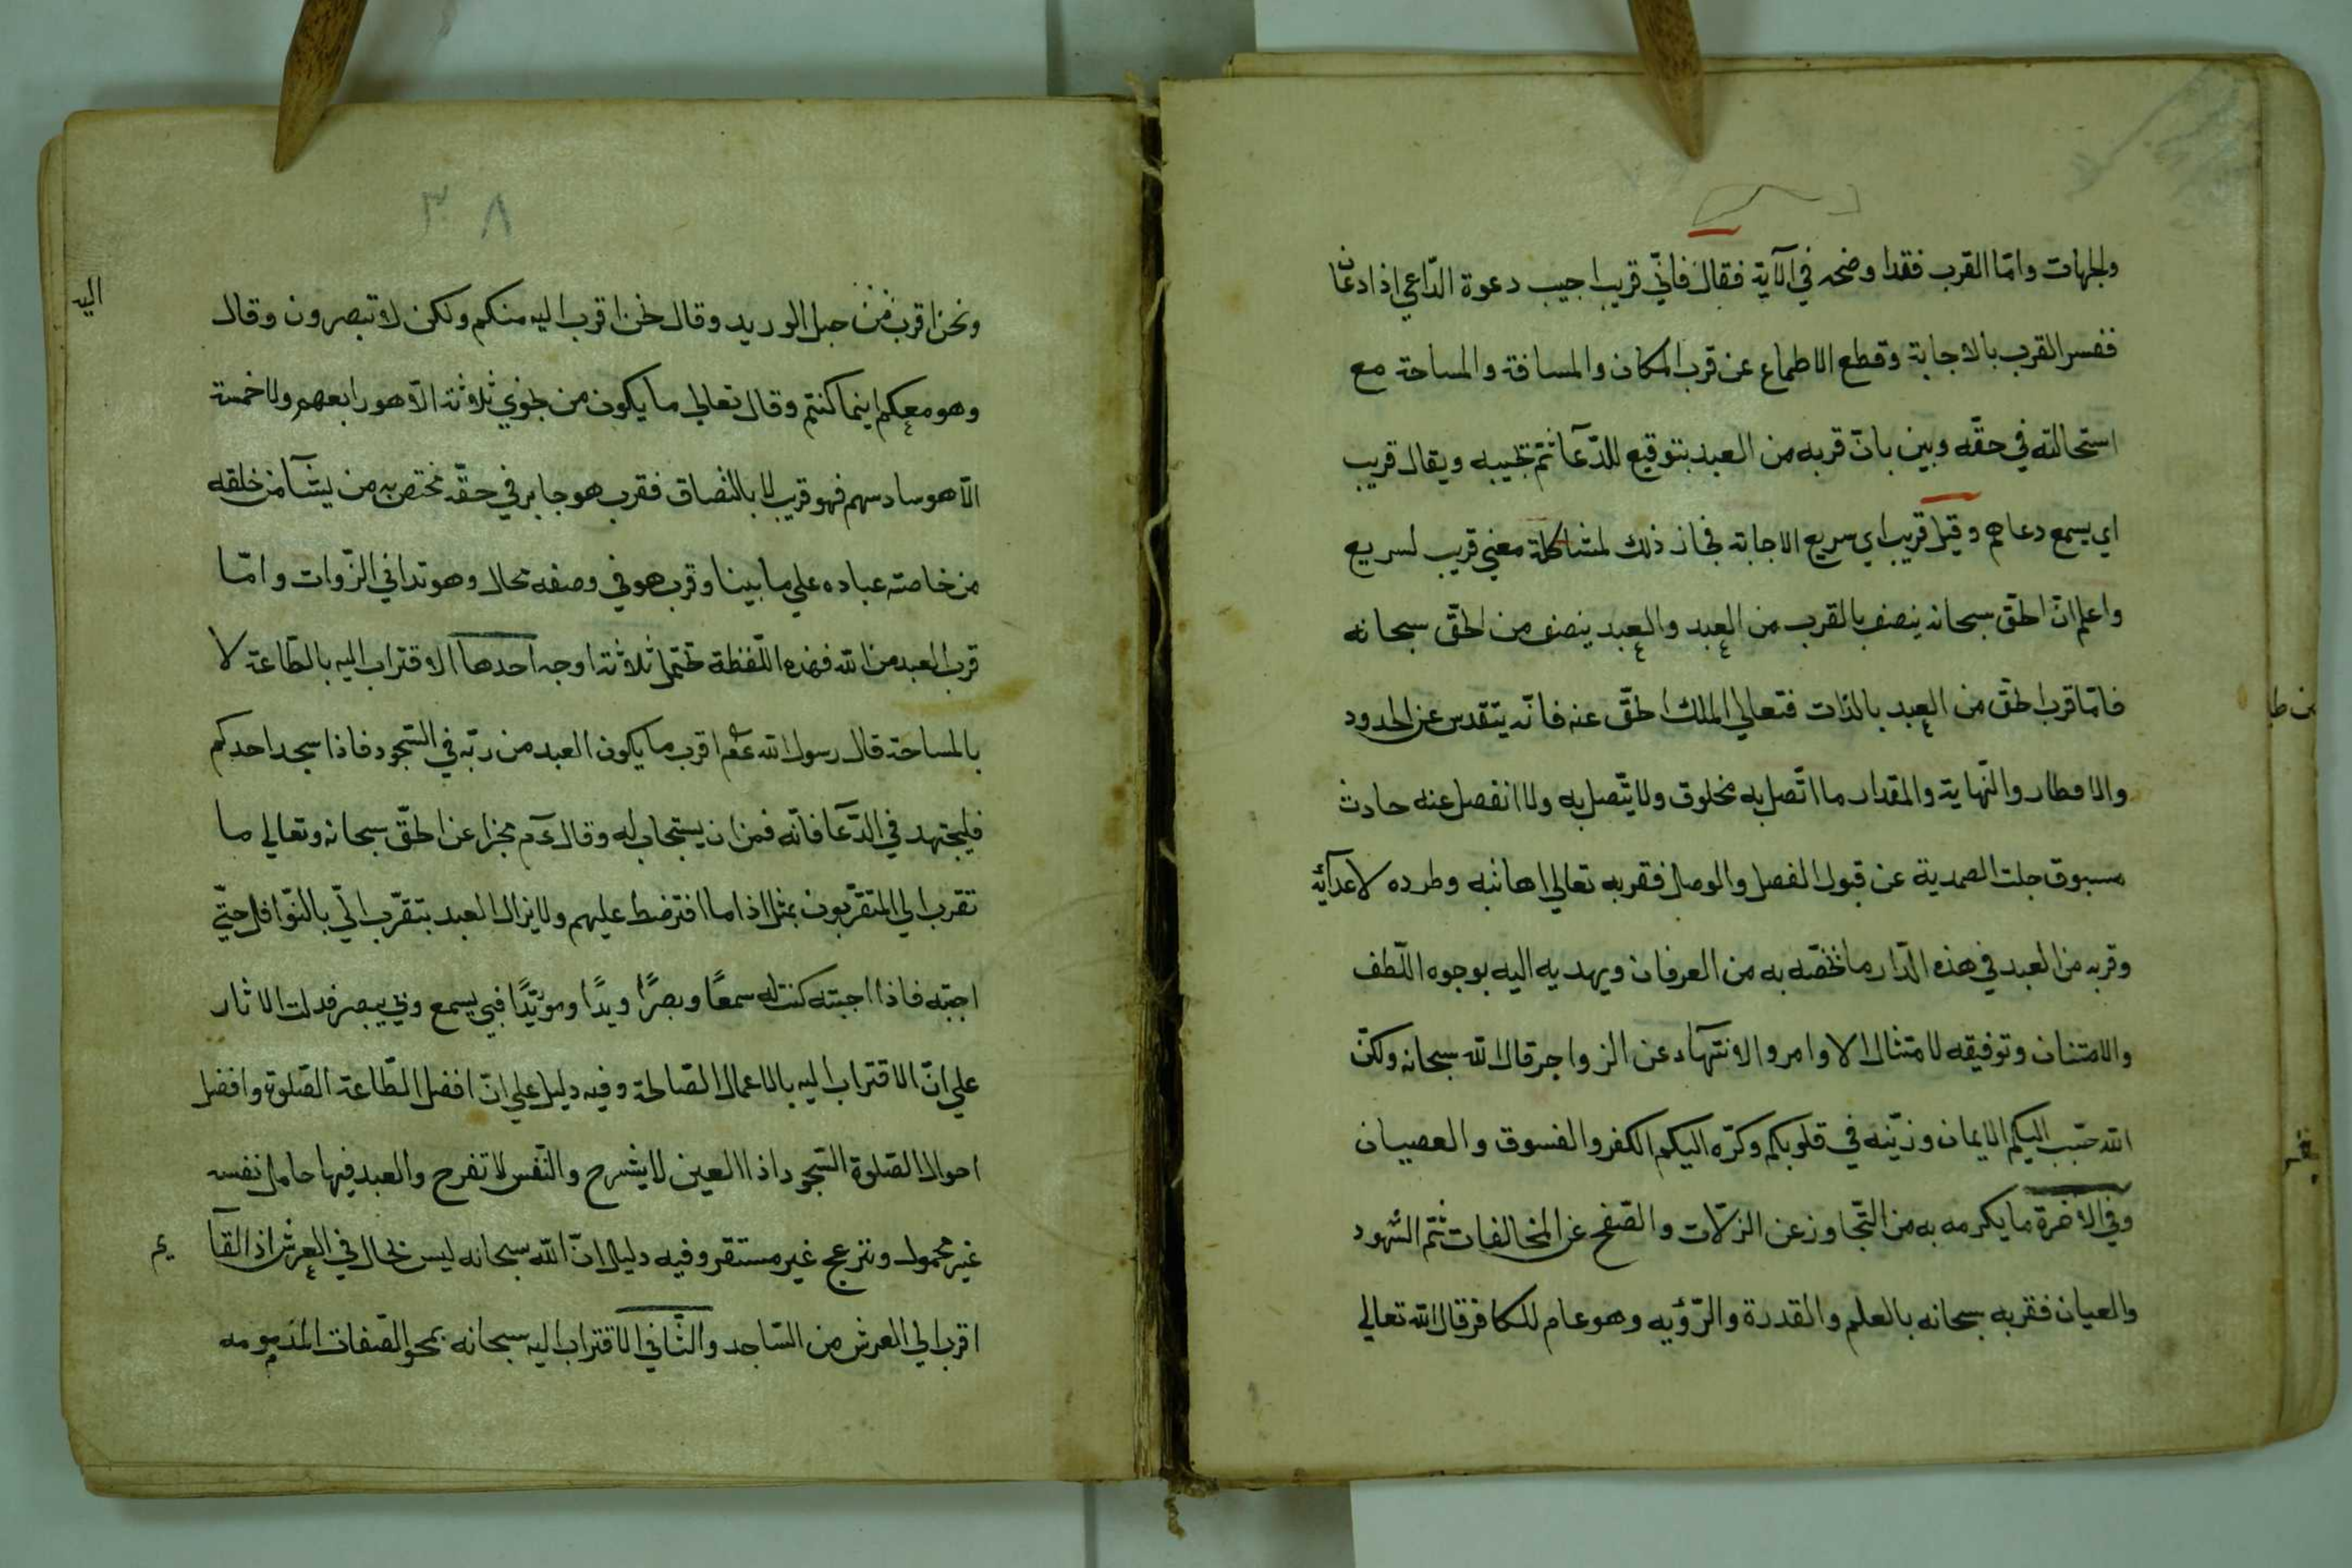 والجهات وامّا القرب فقد اوضحه في الآية فقال فانّي قريب اجيب دعوة الدّاعي اذا دعان
ففسر القرب بالاجابة وقطع الاطماع عن قرب المكان والمسافة والمساحة مع
استحالته في حقّه وبين بانّ قربه من العبد بتوقيع للدّعآ ثمّ تجيبه ويقال قريب
اي يسمع دعاهم وقيل قريب اي سريع الاجابة فجاز ذلك لمشاكلة معني قريب لسريع
واعلم انّ الحقّ سبحانه ينصف بالقرب من العبد والعبد ينصف من الحقّ سبحانه
فامّا قرب الحقّ من العبد بالذّات فتعالي الملك الحقّ عنه فانّه يتقدس عن الحدود
والاقطار والنّهاية والمقدار ما اتّصل به مخلوق ولا يتّصل به ولا انفصل عنه حادث
مسبوق جلت الصمدية عن قبول الفصل والوصل فقربه تعالي اهانته وطرده لاعدآئه
وقربه من العبد في هذه الدّار ما نخصّه به من العرفان ويهديه اليه بوجوه اللّطف
والامتنان وتوفيقه لامتثال الاوامر والانتهآء عن الزواجر قال الله سبحانه ولكنّ
الله حبّب اليكم الايمان وزيّنه في قلوبكم وكرّه اليكم الكفر والفسوق والعصيان
وفي الآخرة ما يكرمه به من التّجاوز عن الزلّات والصّفح عن المخالفات ثمّ الشهود
والعيان فقربه سبحانه بالعلم والقدرة والرّؤيه وهو عام للكافر قال الله تعالي
٣٨
ونحن اقرب من حبل الوريد وقال نحن اقرب اليه منكم ولكن لا تبصرون وقال
وهو معكم اينما كنتم وقال تعالي ما يكون من نجوي ثلاثة الّا هو رابعهم ولا خمسة
الّا هو سادسهم فهو قريب لا بالنصاق فقرب هو جايز في حقّه مختص به من يشآ من خلقه
من خاصة عباده علي ما بينا وقرب هو في وصفه محال وهو تداني الزّوات وامّا
قرب العبد من الله فهذه اللّفظة تحتمل ثلاثة اوجه احدها الاقتراب اليه بالطّاعة لا
بالمساحة قال رسول الله عم اقرب ما يكون العبد من ربّه في السّجود فاذا سجد احدكم
فليجتهد في الدّعآ فانّه فمن ان يستجاب له وقال عم مخبرا عن الحقّ سبحانه وتعالي ما
تقرب الي المتقرّبون بمثل اذا ما افترضط عليهم ولا يزال العبد بتقرّب اليّ بالنّوافل حتّي
اجبّه فاذا اجبته كنت له سمعًا وبصرًا ويدًا ومؤيّدًا فبي يسمع وبي يبصر فدلت الاثار
علي انّ الاقتراب اليه بالاعمال الصّالحة وفيه دليل علي انّ افضل الطّاعة الصّلوة وافضل
احوال الصّلوة السّجود اذا العين لا يشرح والنّفس لا تفرح والعبد فيها حامل نفسه
غير محمول ونتزعج غير مستقر وفيه دليل انّ الله سبحانه ليس بحال في العرش اذ القآ يم
اقرب الي العرش من السّاجد والثّاني الاقتراب اليه سبحانه بمحو الصّفات المذمومه
اليه